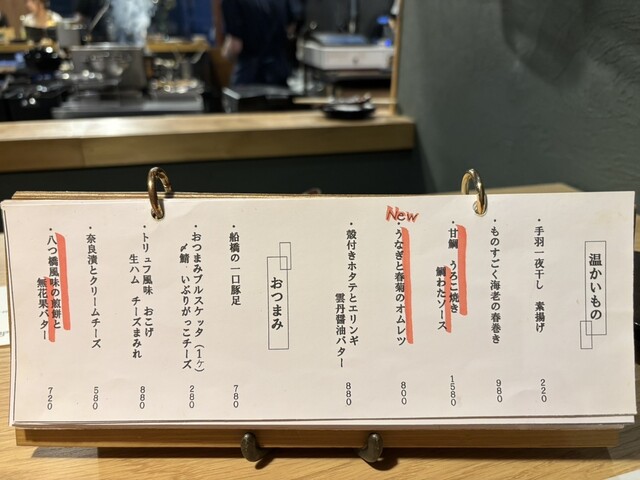 温かいもの
・手羽一夜干し 素揚げ 220
・ものすごく海老の春巻き 980
・甘鯛 うろこ焼き
鯛わたソース 1580
New
・うなぎと春菊のオムレツ 800
・殻付きホタテとエリンギ
雲丹醤油バター 880
おつまみ
・船橋の一口豚足 780
・おつまみブルスケッタ(1ヶ)
〆鯖 いぶりがっこチーズ 280
・トリュフ風味 おこげ
生ハム チーズまみれ 880
・奈良漬とクリームチーズ 580
・八つ橋風味の煎餅と
無花果バター 720